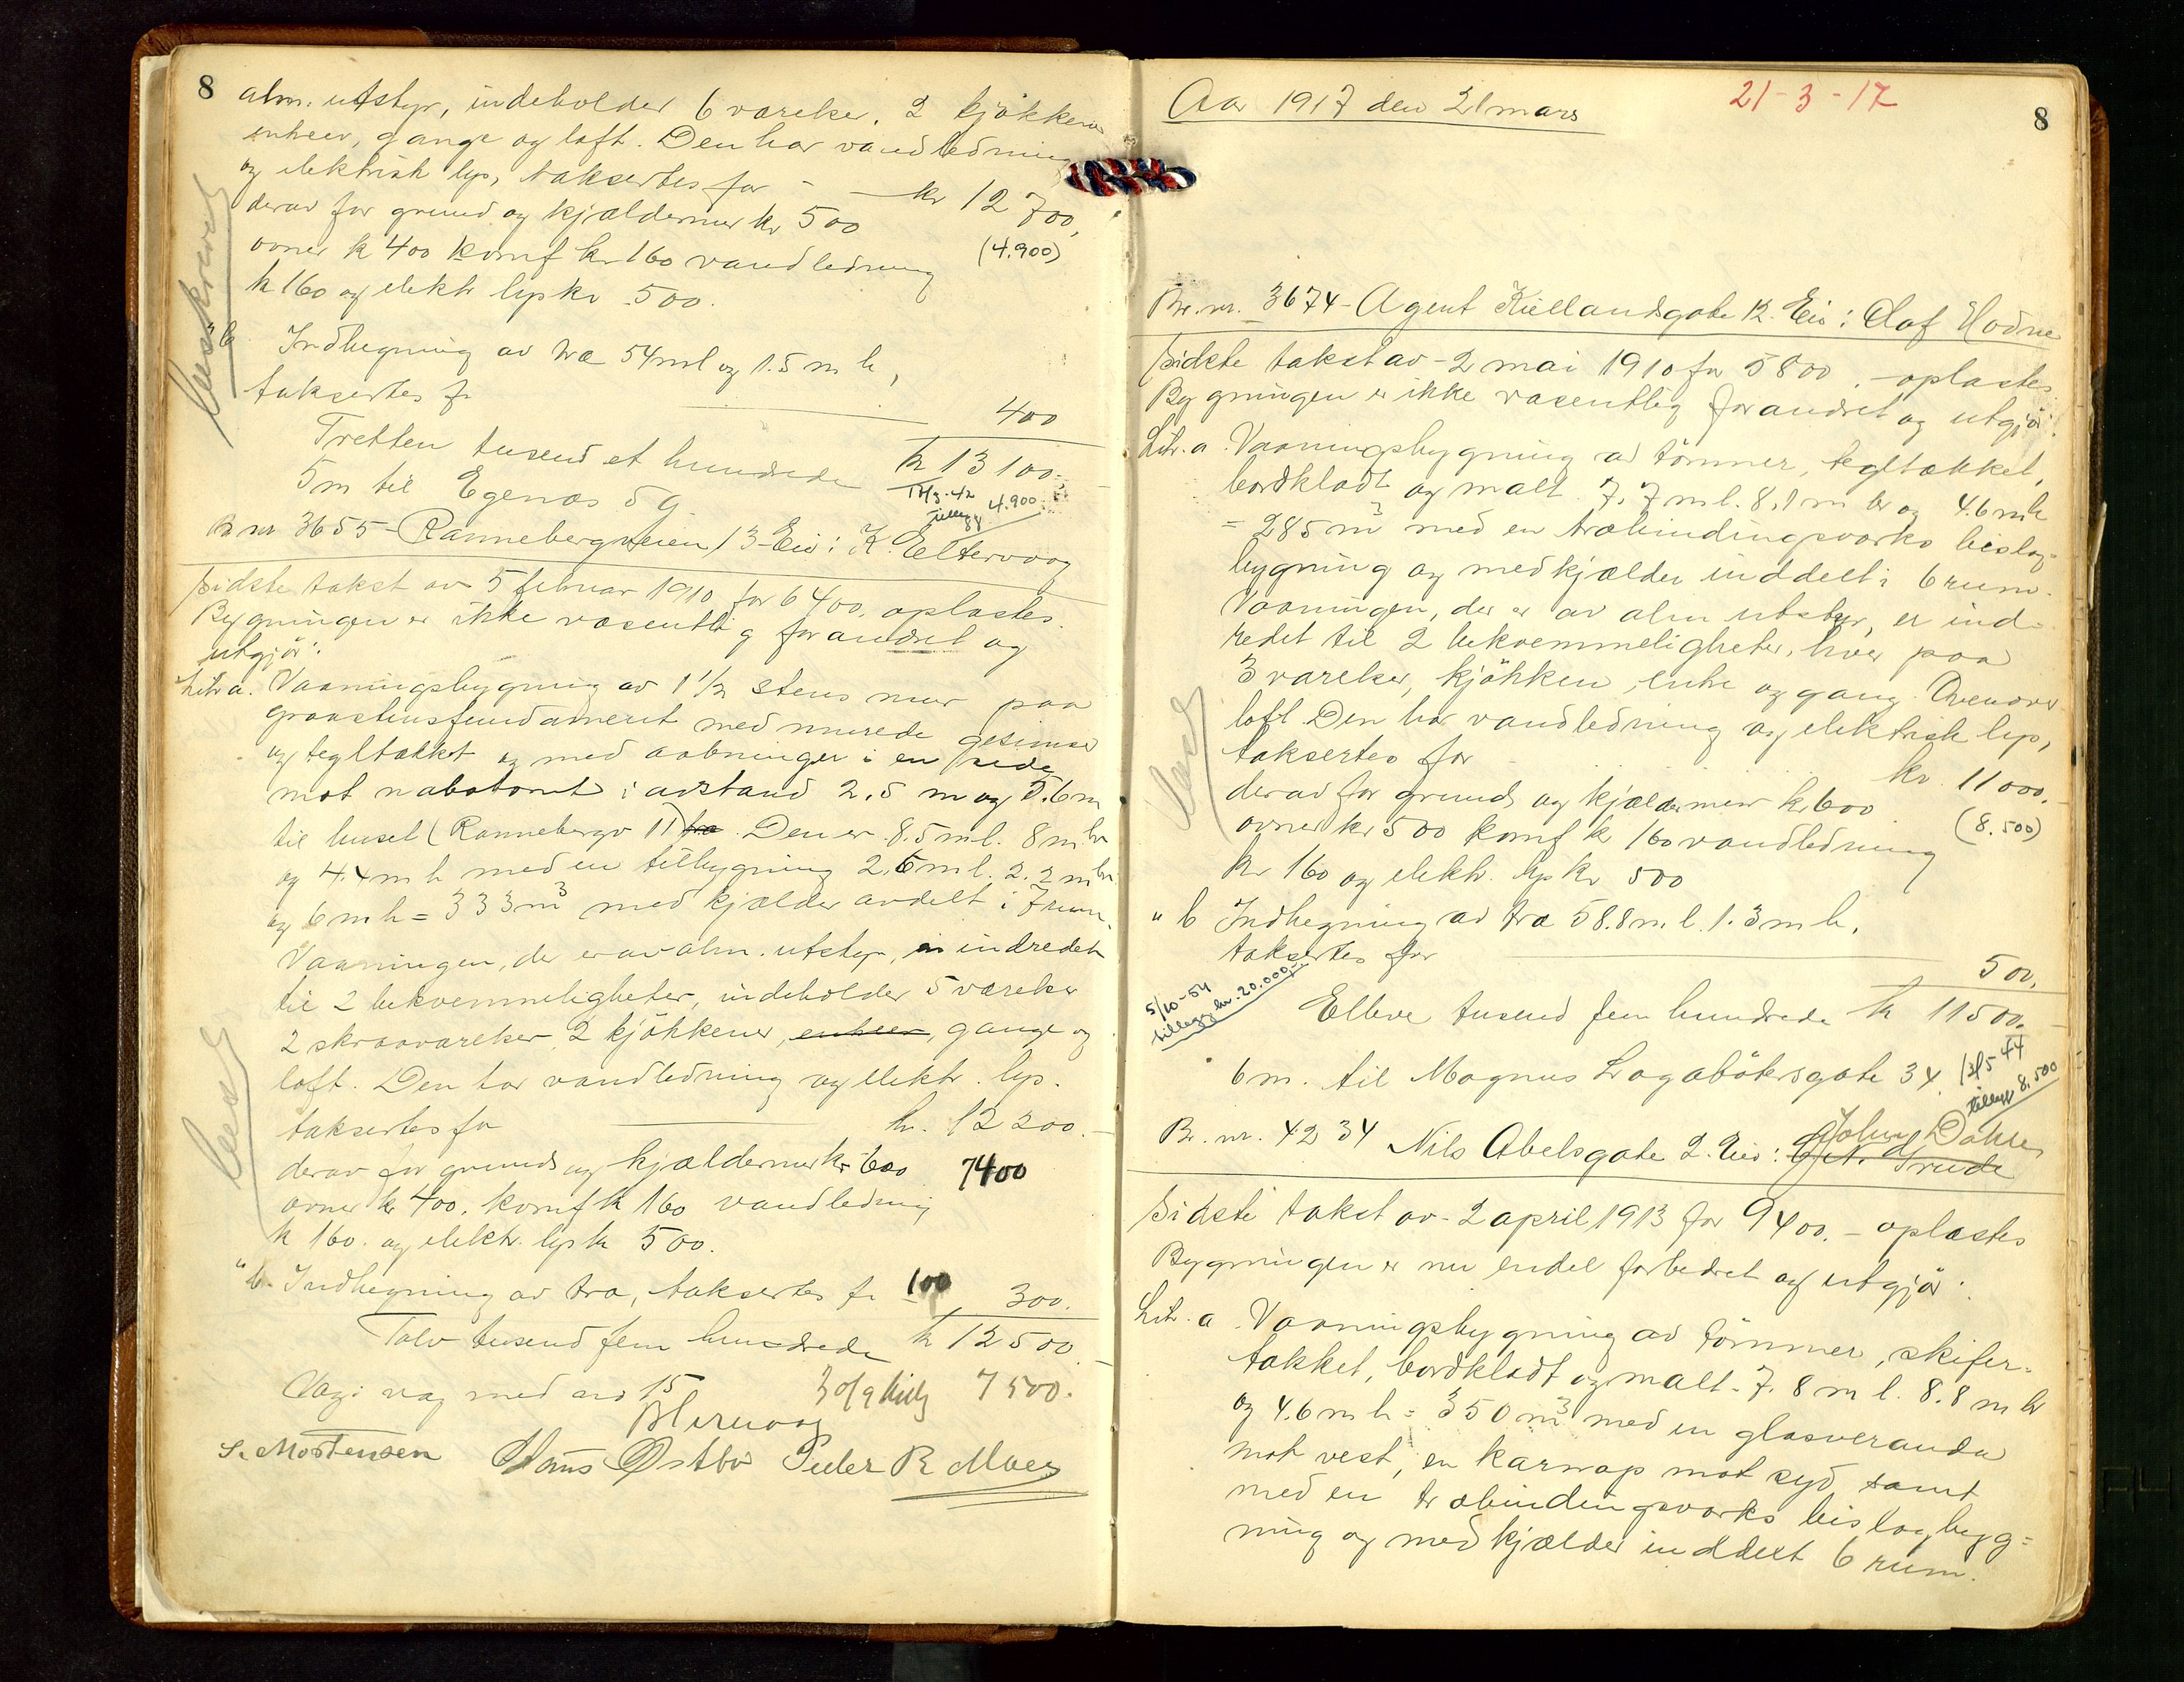 8
alm. utstyr, indeholder 6 værelser, 2 kjökkener
entreer, gange og loft. Den har vandledning
og elektrisk lys, taksertes for - kr 12 700,
derav for grund og kjældermur kr 500
(4.900)
ovner k 400 komf kr 160 vandledning
k 160 og elektr lys kr 500.
" b Indhegning av træ 54 m l og 1.5 m h,
taksertes fr 400
Tretten tusend et hundrede kr 13 100.-
5m til Egenæs 59 tillegg 4.900
Br nr 3655 - Rannebergveien 13 - Eio: K. Eltervaag
Sidste takst av 5 februar 1910 for 6400, oplæstes.
Bygningen er ikke væsentlig forandret og
utgjör:
Litr a. Vaaningsbygning av 1 1/2 stens mur paa
graastensfundament med murede gesimser
og tegltækket og med aabninger i en side
mot nabotomt i avstand 2.5 m og 5.6 m
til huset (Rannebergv 11). Den er 8.5 m l. 8 m br
og 4.4 m h med en tilbygning 2.6 m l. 2.2 m br
og 6 m h = 333 m3 med kjælder avdelt i 7 rum.
Vaaningen, der er av alm. utstyr, er indredet
til 2 bekvemmeligheter, indeholder 5 værelser
2 skraaværelser, 2 kjökkener, entreer, gange og
loft. Den har vandledning og elektr. lys.
taksertes for kr. 12 200.-
derav for grund og kjældermur kr 600 7400
ovner kr 400. komf k 160 vandledning
k 160. og elektr. lys kr 500.
" b. Indhegning av træ, taksertes fr 100 300.
Tolv tusend fem hundrede kr 12500.-
Vag i vag med nr 15 30/9 tillg 7500.
S. Mortensen Hans Østbø Peder R Moe
8
Aar 1917 den 21 mars
21-3-17
Br. nr. 3674 - Agent Kiellandsgate 12. Eio: Olaf Hodne
Sidste takst av - 2 mai 1910 for 5800. - oplæstes
Bygningen er ikke væsentlig forandret og utgjör:
Litr. a. Vaaningsbygning av tömmer, tegltækket,
bordklædt og malt. 7.7 m l. 8.1 m br og 4.6 m h
= 285 m3 med en træbindingsværks bislag-
bygning og med kjælder inddelt i 6 rum.
Vaaningen, der er av alm utstyr, er ind-
redet til 2 bekvemmeligheter, hver paa
3 værelser, kjökken, entre og gang. Ovenover
loft. Den har vandledning og elektrisk lys,
taksertes for kr. 11 000.-
derav for grund og kjældermur kr 600
(8.500)
ovner kr 500 komf k 160 vandledning
kr 160 og elektr. lys kr 500
" b Indhegning av træ 58.8 m. l. 1.3 m h.
taksertes for 500.
5/10-54
tillegg kr. 20.000,-
Elleve tusend fem hundrede kr 11500.-
6 m. til Magnus Lagabötersgate 34. 12/5 44
tillegg 8.500
Johan Dahle
Br. nr. 4234 Nils Abelsgate 2. Eio:
Sidste takst av - 2 april 1913 for 9400. - oplæstes
Bygningen er nu endel forbedret og utgjör:
Litr. a. Vaaningsbygning av tömmer, skifer-
tækket, bordklædt og malt - 7.8 m l. 8.8 m br
og 4.6 m h = 350 m3 med en glasveranda
mot vest, en karnap mot syd samt
med en træbindingsværks bislagbyg=
ning og med kjælder inddelt 6 rum.